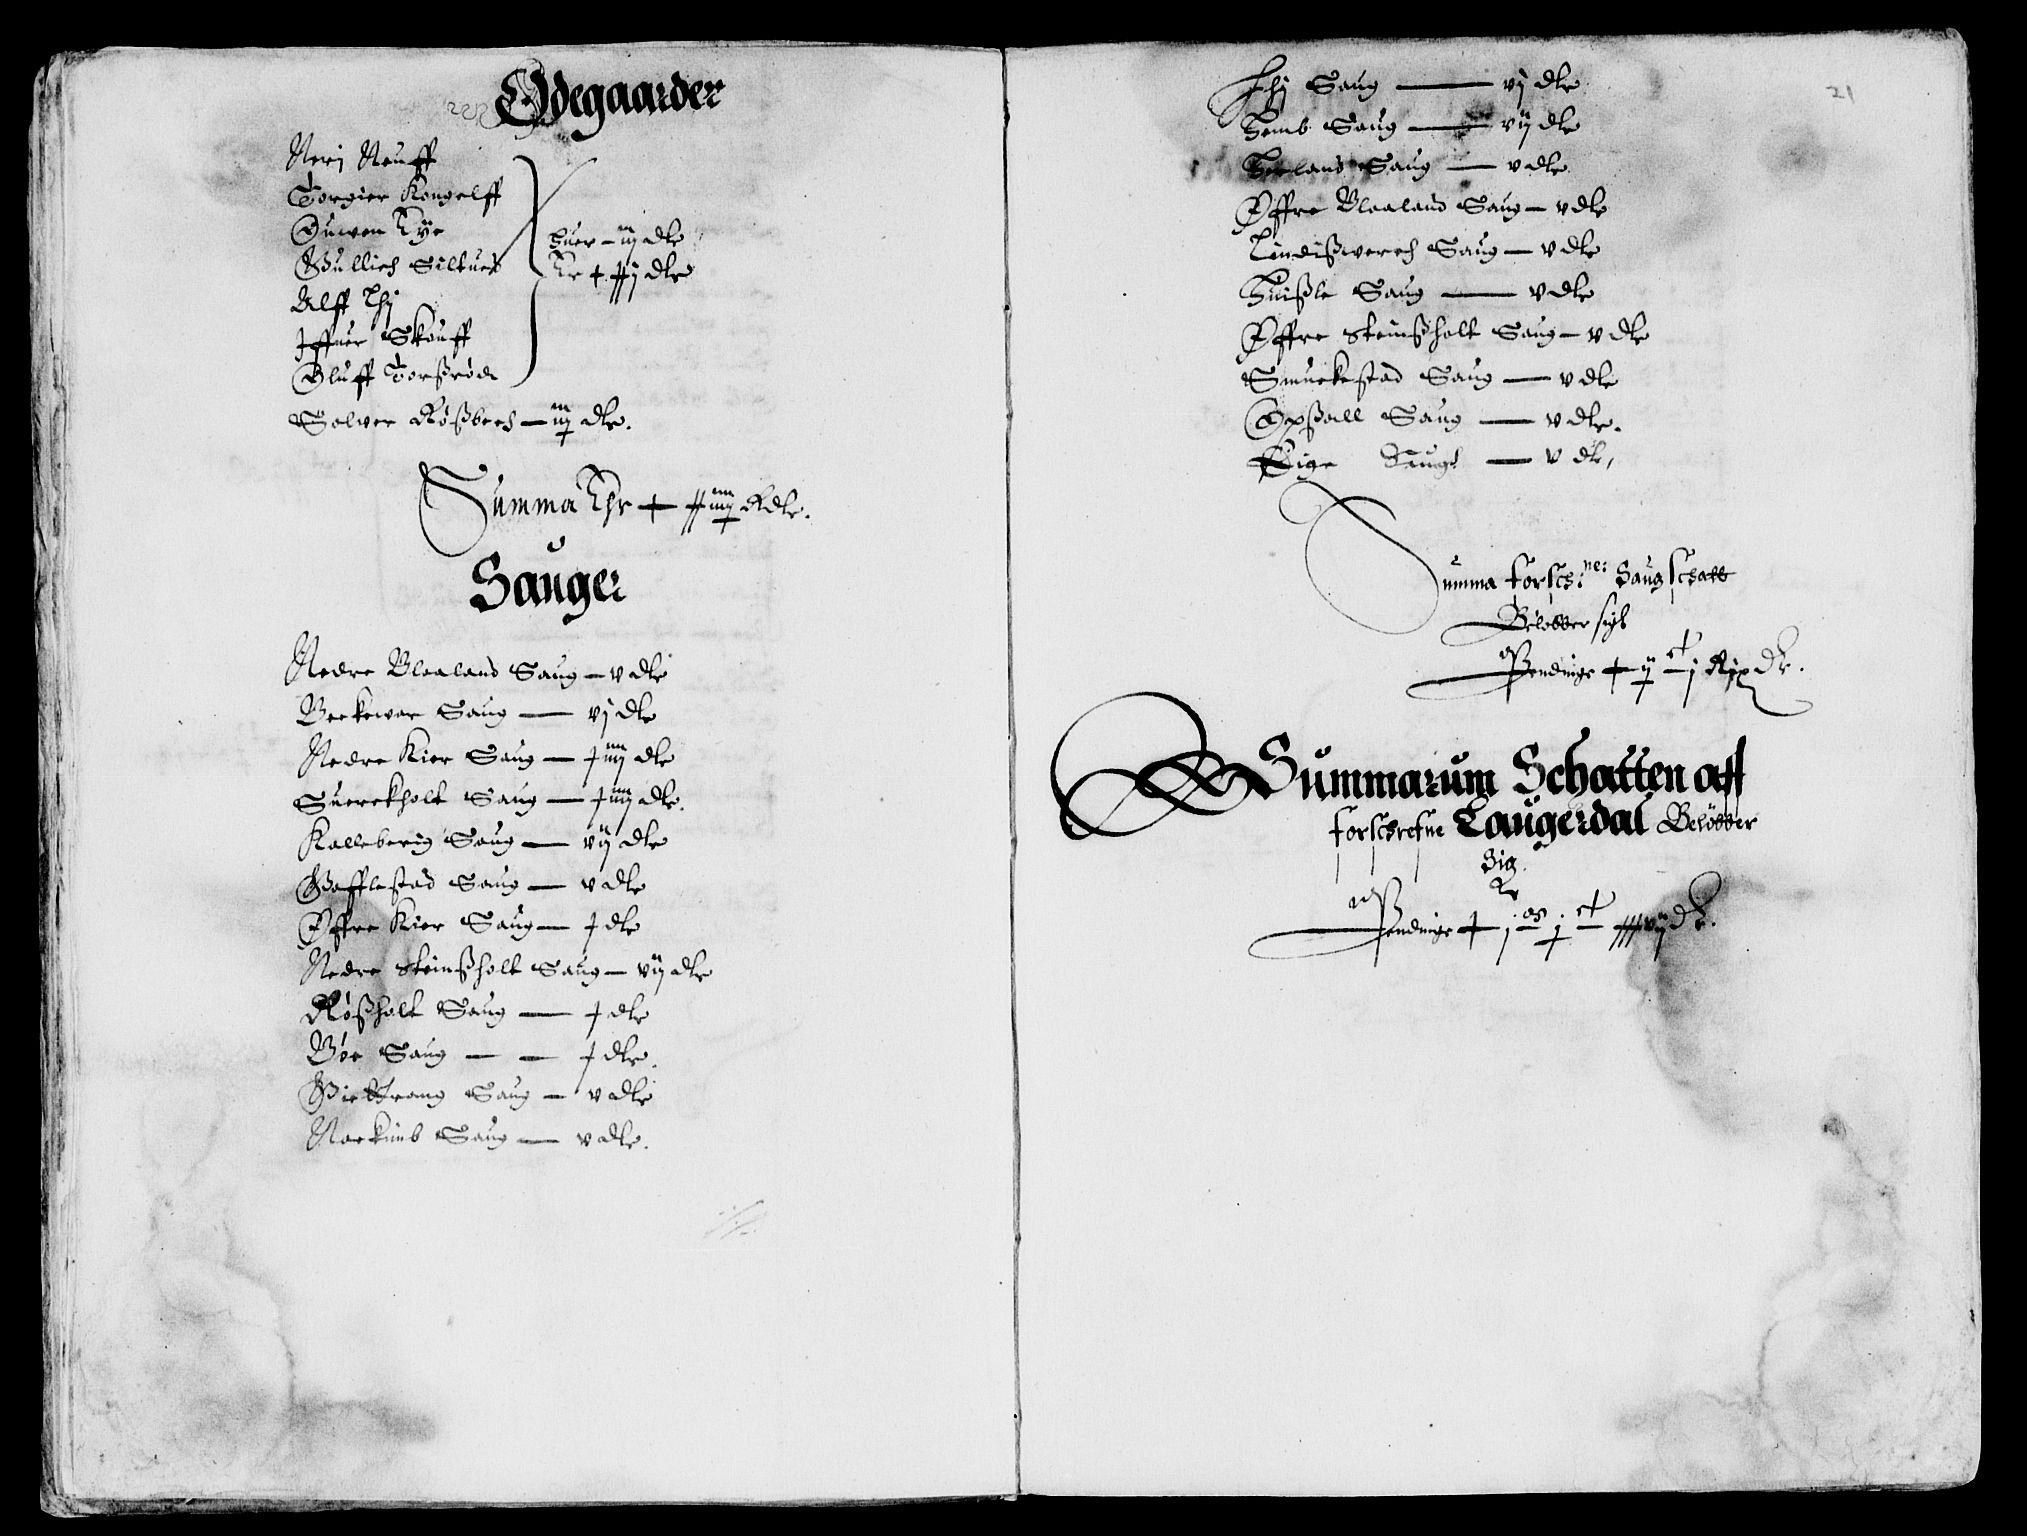 Ødegaarder
Neri Neuff
Torgier Kongelff
Ouwen Rye
Gullich Siltued
Alff Lhj
Iffuer Skouff
Oluff Torßrød
huer – iij dlr
Er + xxj dlr
Solver Røßbech – iij dlr.
Summa Thr + xxiiij Rdlr.
Sauger
Nedre Blaaland Saug – v dlr
Beckewar Saug — vj dlr
Nedre Kier Saug — xiiij dlr
Suerckholt Saug — xiiij dlr.
Kalleberig Saug — vij dlr
Gafflestad Saug — v dlr
Øffre Kier Saug — x dlr
Nedre Steinßholt Saug – vij dlr
Røßholt Saug — x dlr
Bøe Saug — — x dlr.
Giettrang Saug — v dlr
Narkimb Saug — v dlr.
21
Lhj Saug — vj dlr
Hemb Saug — vij dlr
Herland Saug — v dlr
Øffre Blaaland Saug – v dlr
Lindißwerch Saug — v dlr
Huißle Saug — v dlr
Øffre Steinßholt Saug – v dlr
Smuckestad Saug — v dlr
Opßall Saug — v dlr.
Eige Saug — v dlr,
Summa forschne: Saug schatt
Beløbber sigh
Pendinge + ij ct j Rix Dlr.
Summarum Schatten aff
forschrefne Laugerdal Beløbber
Sig.
Er
Pendinge + j m j ct xxxvij dlr.